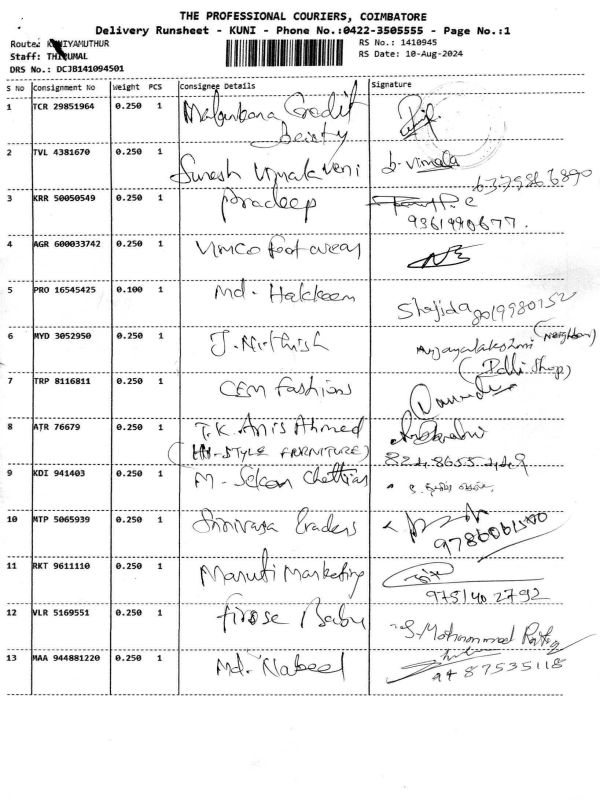 THE PROFESSIONAL COURIERS, COIMBATORE
Delivery Runsheet - KUNI - Phone No.:0422-3505555 - Page No.:1
Route: KUNIYAMUTHUR
RS No.: 1410945
Staff: THIRUMAL
RS Date: 10-Aug-2024
DRS No.: DCJB141094501
S No Consignment No Weight PCS Consignee Details Signature
1 TCR 29851964 0.250 1 Malankara Credit
2 TVL 4381670 0.250 1 Suresh b. vimala
3 KRR 50050549 0.250 1 Pradeep
9361990677.
4 AGR 600033742 0.250 1 Vmco footwear
5 PRO 16545425 0.100 1 Md. Hakkeem Shajida 8019980152
6 MYD 3052950 0.250 1 J. Nirthish (Neighbour)
(Idli Shop)
7 TRP 8116811 0.250 1 CEM fashions
8 ATR 76679 0.250 1 T.K. Anis Ahmed
(HI-STYLE FURNITURE)
9 KDI 941403 0.250 1 M. Chettiar
10 MTP 5065939 0.250 1 Srinivasa Traders
11 RKT 9611110 0.250 1 Maruti Marketing
9751402792
12 VLR 5169551 0.250 1 firose Babu S. Mohammed
13 MAA 944881220 0.250 1 Md. Nabeel 9487535118